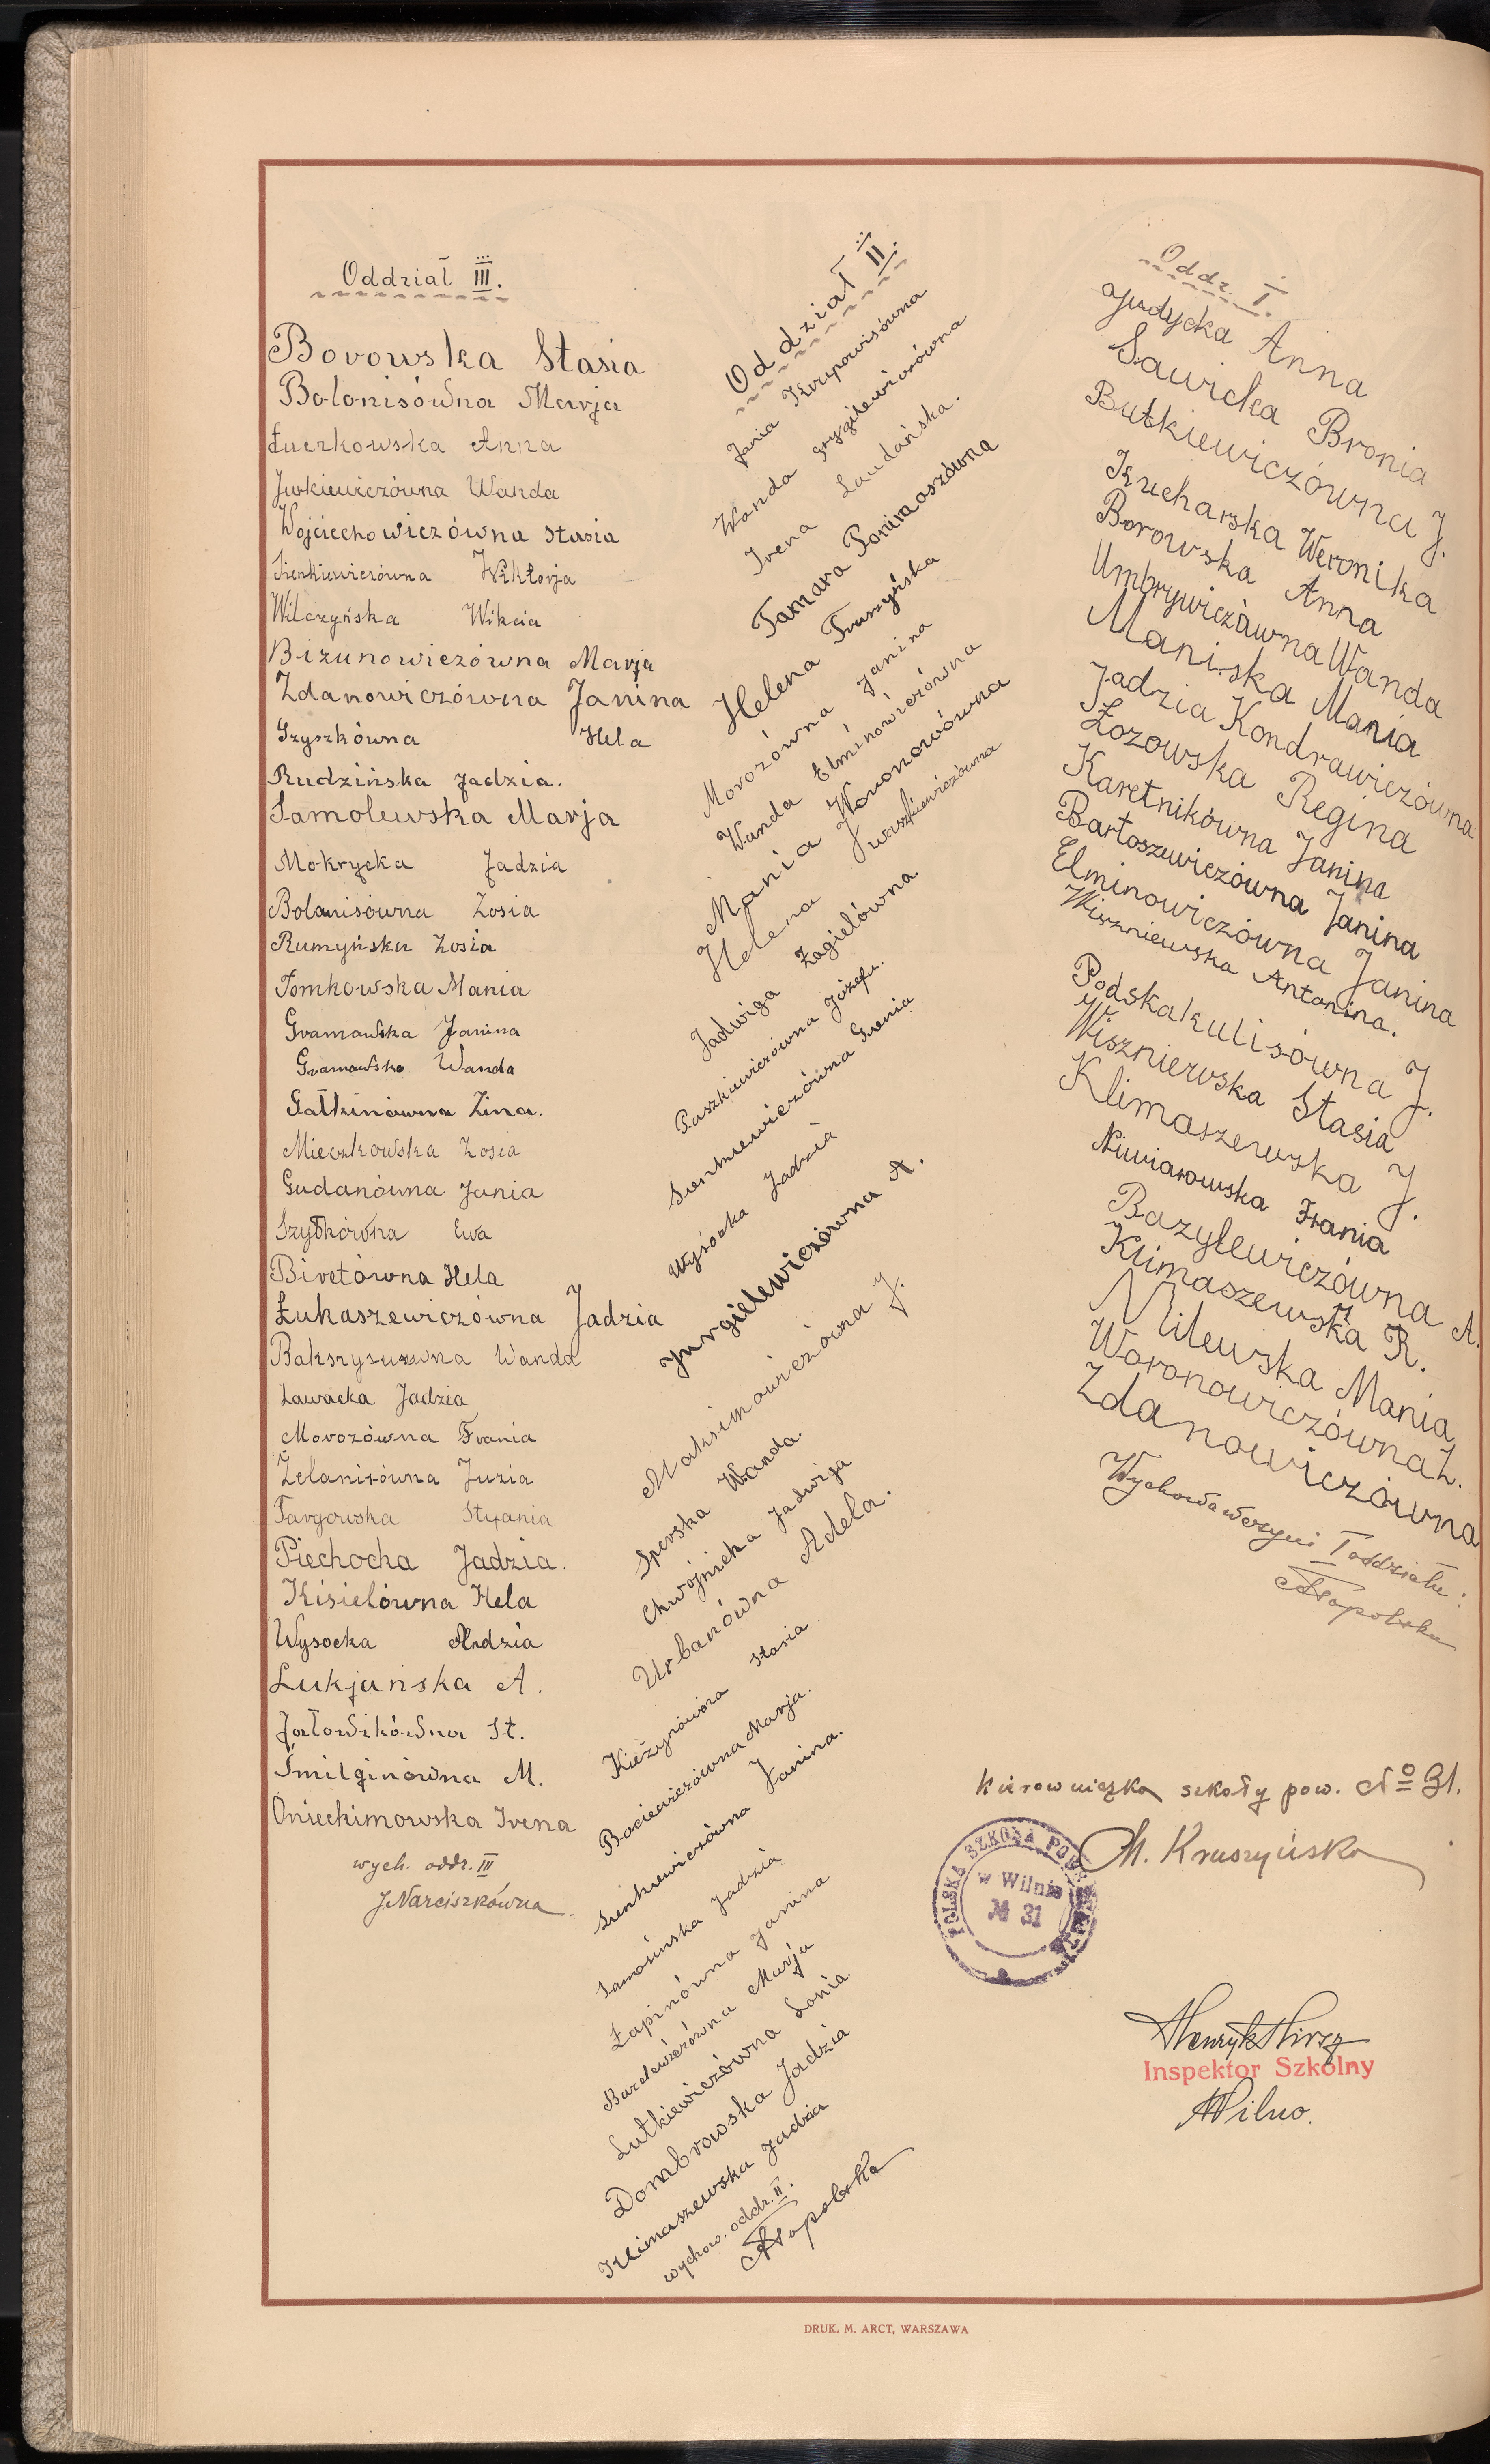 Oddział III.
Borowska Stasia
Bolonisówna Marja
Łuczkowska Anna
Juskiewiczówna Wanda
Wojciechowiczówna Stasia
Sienkiewiczówna Wiktorja
Wilczyńska Wikcia
Bizunowiczówna Marja
Zdanowiczówna Janina
Gryszkówna Hela
Rudzińska Jadzia.
Samolewska Marja
Mokrzycka Jadzia
Bolanisówna Zosia
Rumyńska Zosia
Tomkowska Mania
Gramowska Janina
Gramowska Wanda
Sałtinówna Zina.
Mieczkowska Zosia
Gudanówna Jania
Szydkówna Ewa
Biretówna Hela
Łukaszewiczówna Jadzia
Wanda
Ławacka Jadzia
Morozówna Frania
Żelanisówna Juzia
Targowska Stefania
Piechocka Jadzia.
Kisielówna Hela
Wysocka Andzia
Lukjańska A.
Jałowikówna St.
Śmilginówna M.
Onieckimowska Irena
wych. oddr. III
J Narciszkówna.
Oddział II.
Jania Krupowisówna
Wanda Grygilewiczówna
Irena Laudańska.
Tamara Ponimaszówna
Helena Truszyńska
Morozówna Janina
Wanda Elminowiczówna
Mania Woronowówna
Helena Juraszkiewiczówna
Jadwiga Żagielówna.
Paszkiewiczówna Józefa.
Sienkiewiczówna Gienia
Wysocka Jadzia
Jurgielewiczówna A.
Maksimowiczówna J.
Sperska Wanda.
Chwojnicka Jadwiga
Urbanówna Adela.
Kieżynówna Stasia.
Bociewiczówna Marja.
Sienkiewiczówna Janina.
Samosińska Jadzia
Łapinówna Janina
Marja
Lutkiewiczówna Lonia.
Dombrowska Jadzia
Klimaszewska Jadzia
wychow. oddz. II.
Kłopolska
Oddz. I.
Gudycka Anna
Sawicka Bronia
Butkiewiczówna J.
Kucharska Weronika
Borowska Anna
Umbrywiczówna Wanda
Maniska Mania
Jadzia Kondrawiczówna
Łozowska Regina
Karetnikówna Janina
Bartoszewiczówna Janina
Elminowiczówna Janina
Wiszniewska Antonina.
Podskakulisówna J.
Wiszniewska Stasia
Klimaszewska J.
Niwiarowska Frania
Bazylewiczówna A.
Klimaszewska R.
Milewska Mania
Woronowiczówna Z.
Zdanowiczówna
Wychowawczyni I oddziału:
Kłopolska
Kierowniczka szkoły pow. No 31.
M. Kruszyńska
POLSKA SZKOŁA POWSZECHNA
w Wilnie
№ 31
Henryk
Inspektor Szkolny
Wilno.
DRUK. M. ARCT, WARSZAWA